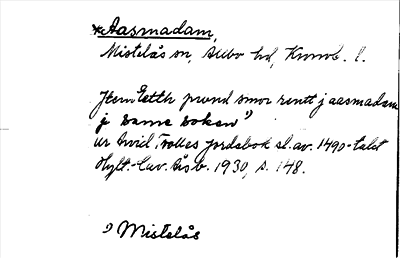 *Aasmadam,
Mistelås sn, Allbo hd, Kronob. l.
Jtem Eetth pund smör rentt j aasmadam
j same soken ⁾
ur Arvid Trolles jordebok sl. av. 1490-talet
Hylt.-Cav. Åsb. 1930, s. 148.
⁾ Mistelås